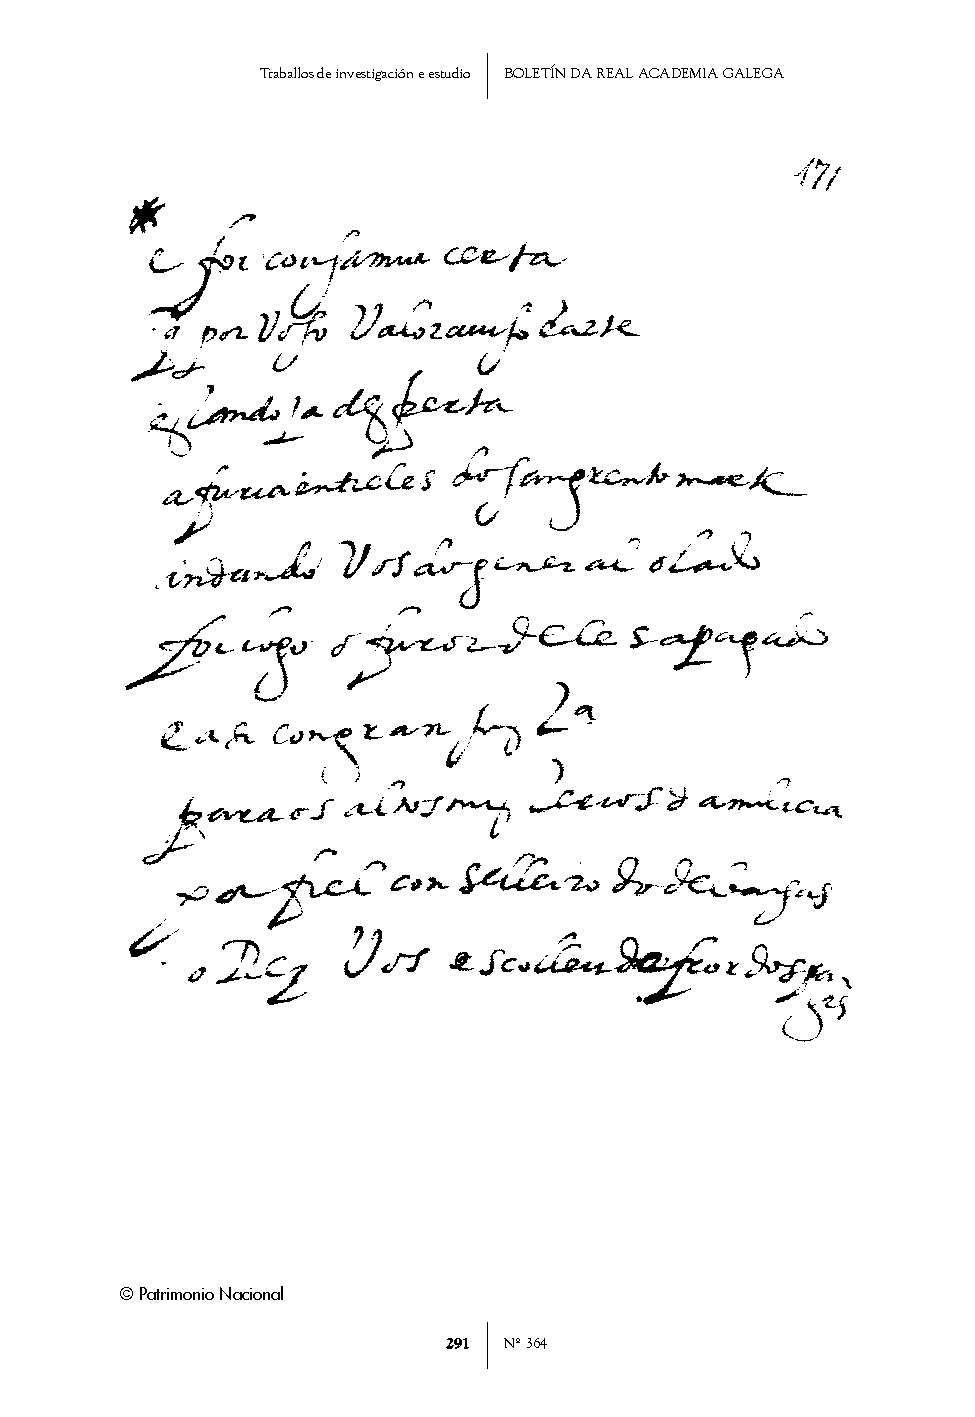 Traballos de investigación e estudio
BOLETÍN DA REAL ACADEMIA GALEGA
171
e foi con fama certa
q por Voso Valor
estando ja desperta
a furia entreles do sangrento marte
indando Vos do general o lado
foi logo o furor deles apagado
e asi con gran
para os altos da milicia
por fiel conselleiro do de
o Rey Vos escollendo fror dos
© Patrimonio Nacional
291
Nº 364